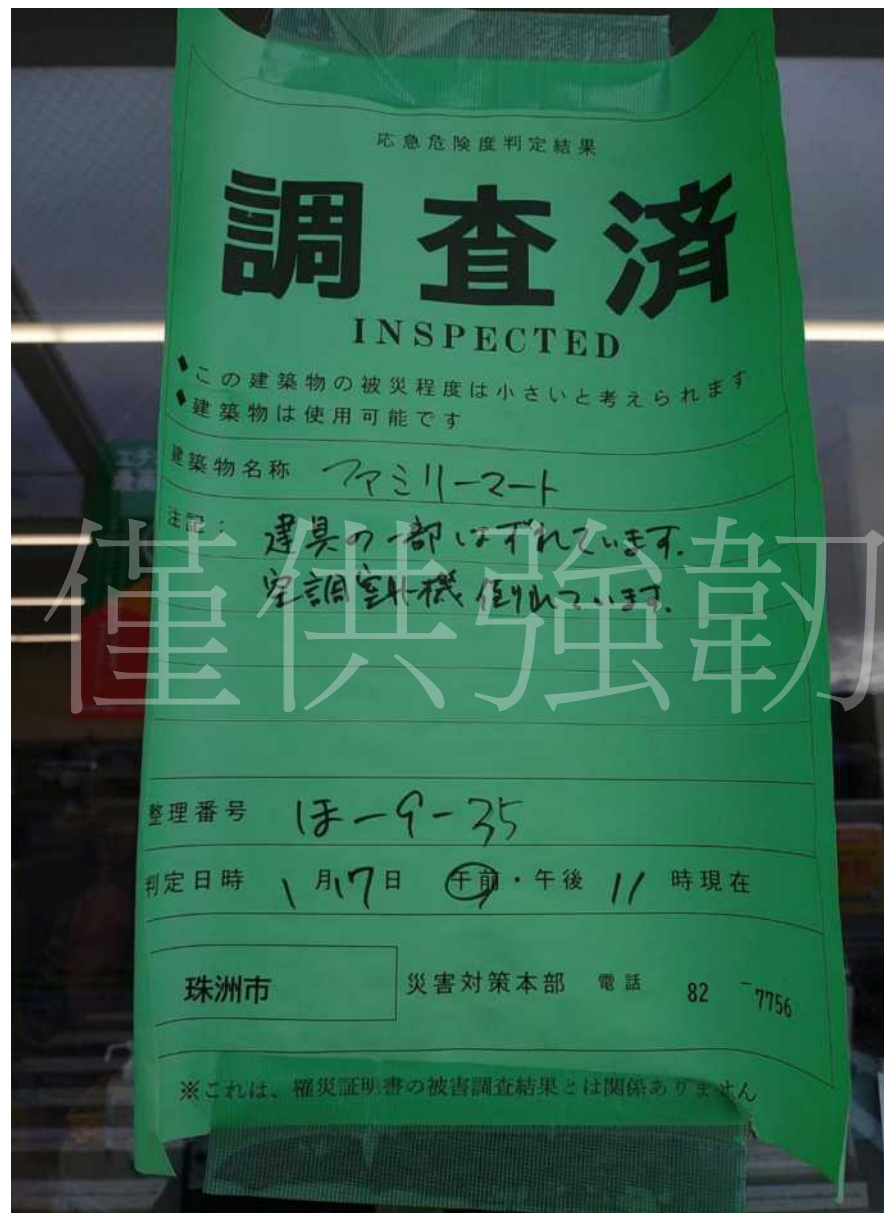 応急危険度判定結果
調査済
INSPECTED
◆この建築物の被災程度は小さいと考えられます
◆建築物は使用可能です
建築物名称 ファミリーマート
注記: 建具の一部はずれています.
空調室外機 倒れています.
僅供強韌
整理番号 ほ-9-35
判定日時 1月17日 午前・午後 11時現在
珠洲市 災害対策本部 電話 82-7756
※これは、罹災証明書の被害調査結果とは関係ありません